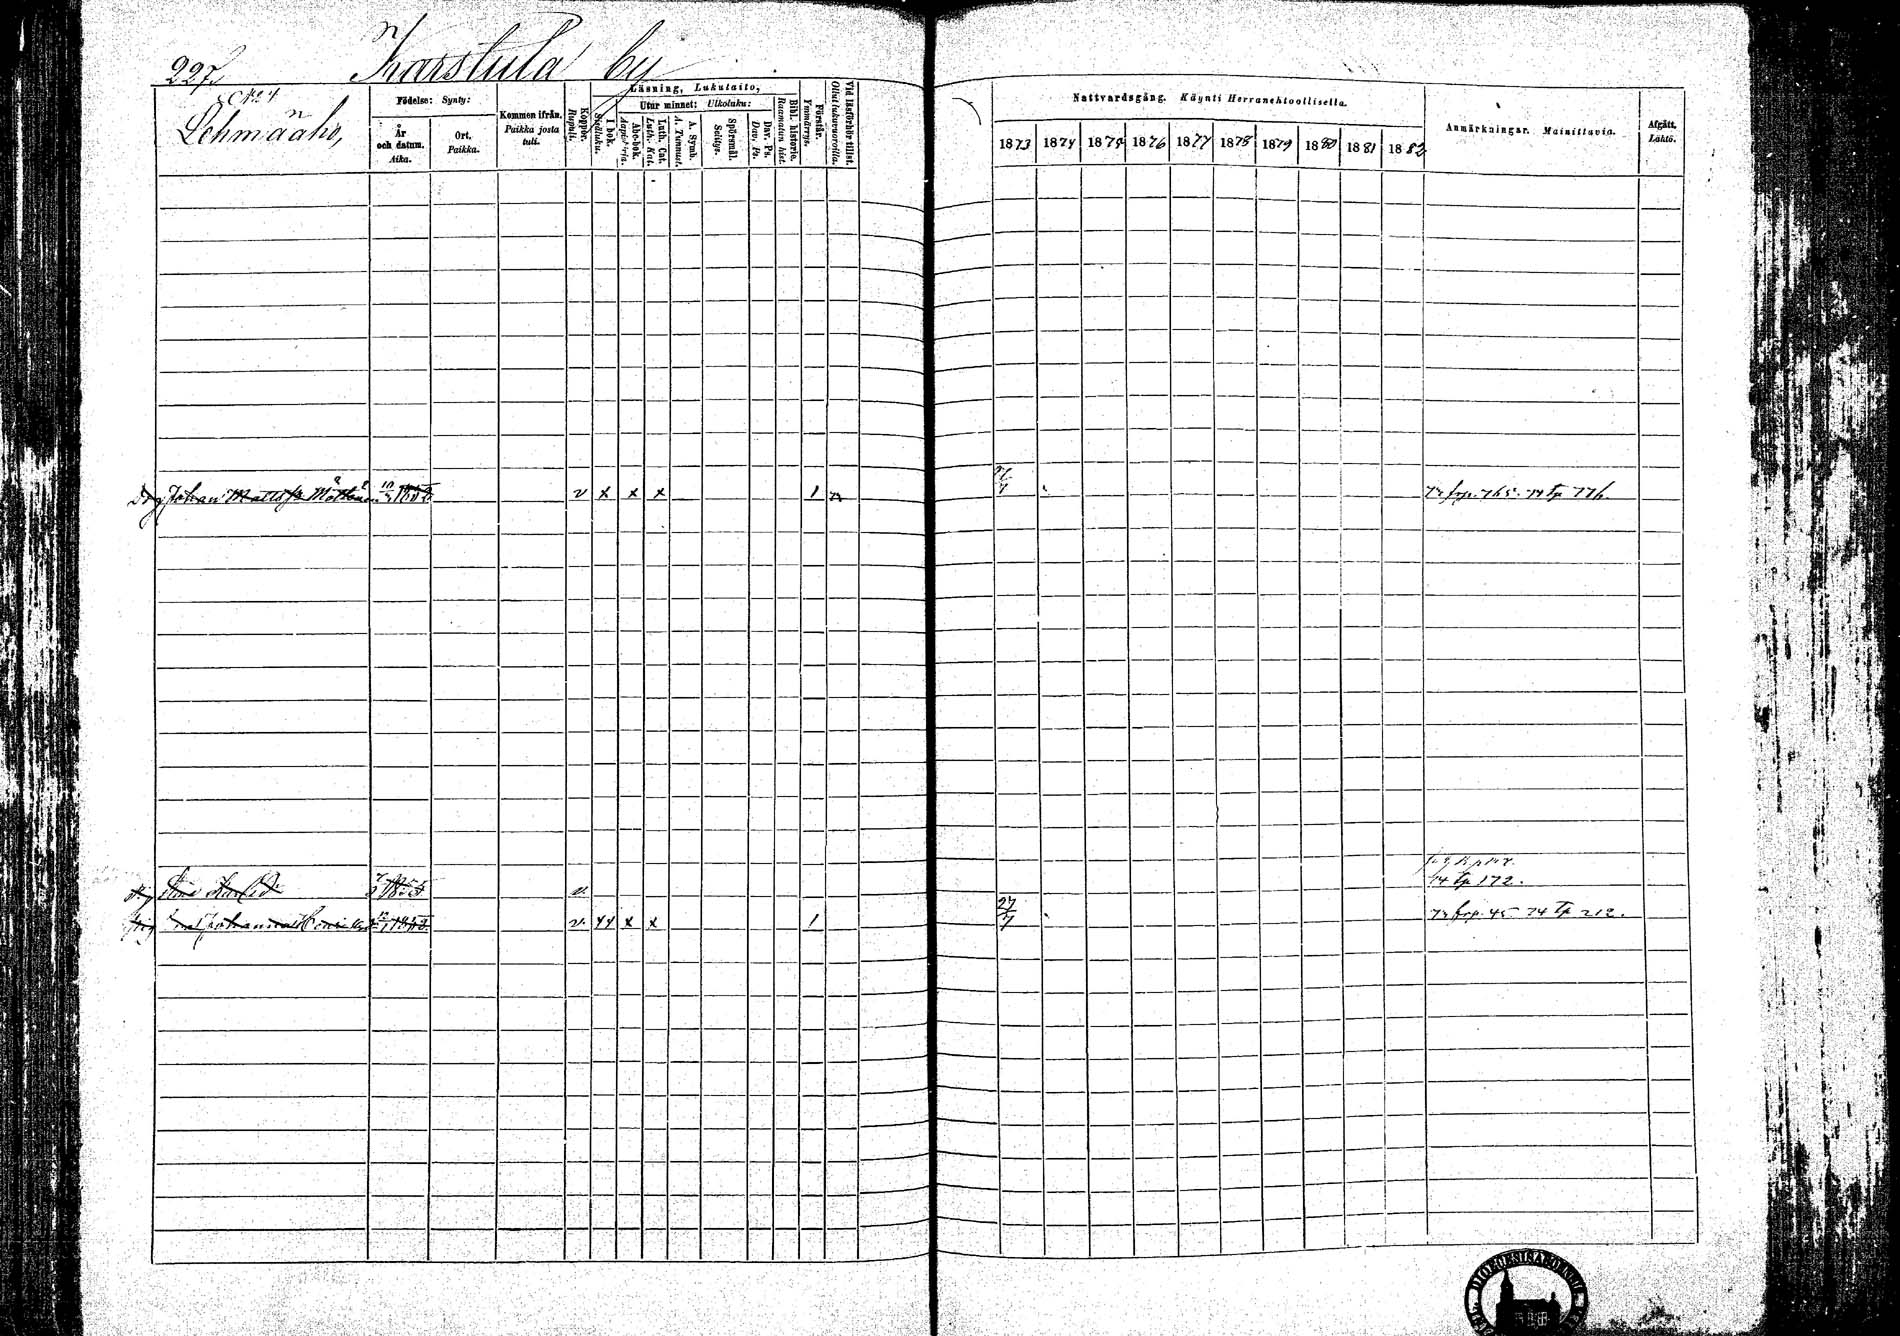 227
Karstula by
No 4
Lehmäaho,
Födelse: Synty:
År och datum. Aika.
Ort. Paikka.
Kommen ifrån. Paikka josta tuli.
Koppor. Rupuli.
Läsning, Lukutaito,
I bok. Sisäluku.
Utur minnet: Ulkoluku:
Abc-bok. Aapiskirja.
Luth. Cat. Luth. Kat.
A. Symb. A. Tunnust.
Spörsmål. Selitys.
Dav. Ps. Dav. Ps.
Bibl. historie. Raamatun hist.
Förstår. Ymmärrys.
Vid läsförhör tillst. Ollut lukuvuoroilla.
Nattvardsgång. Käynti Herranehtoollisella.
1873 1874 1875 1876 1877 1878 1879 1880 1881 1882
Anmärkningar. Mainittavia.
Afgått. Lähtö.
Johan Matts v x x x 1
73 frp. 765. 74 tp 776.
v.
74 tp 172.
v. x x 1 27/7
73 frp. 45 74 tp 212.